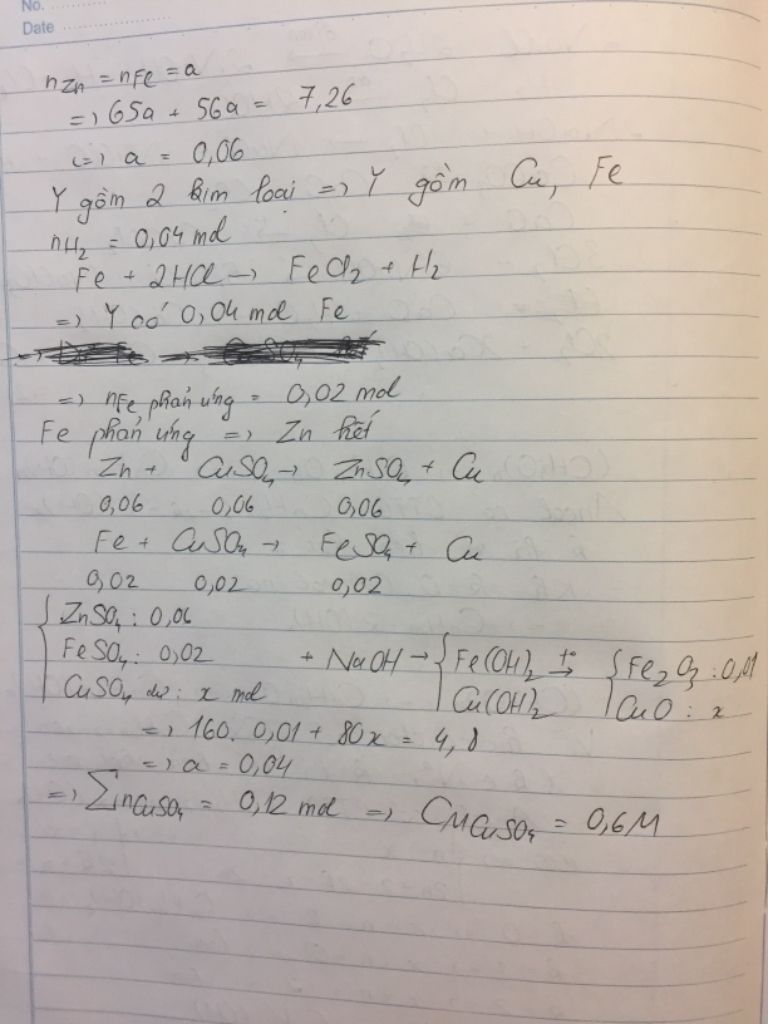 No. ...........
Date ...........
nZn = nFe = a
=> 65a + 56a = 7,26
<=> a = 0,06
Y gồm 2 kim loại => Y gồm Cu, Fe
nH₂ = 0,04 mol
Fe + 2HCl → FeCl₂ + H₂
=> Y có 0,04 mol Fe
=> nFe phản ứng = 0,02 mol
Fe phản ứng => Zn hết
Zn + CuSO₄ → ZnSO₄ + Cu
0,06 0,06 0,06
Fe + CuSO₄ → FeSO₄ + Cu
0,02 0,02 0,02
{ ZnSO₄ : 0,06
FeSO₄ : 0,02 + NaOH → { Fe(OH)₂ t° → { Fe₂O₃ : 0,01
CuSO₄ dư : x mol Cu(OH)₂ CuO : x
=> 160. 0,01 + 80x = 4,8
=> a = 0,04
=> ΣnCuSO₄ = 0,12 mol => CMCuSO₄ = 0,6M